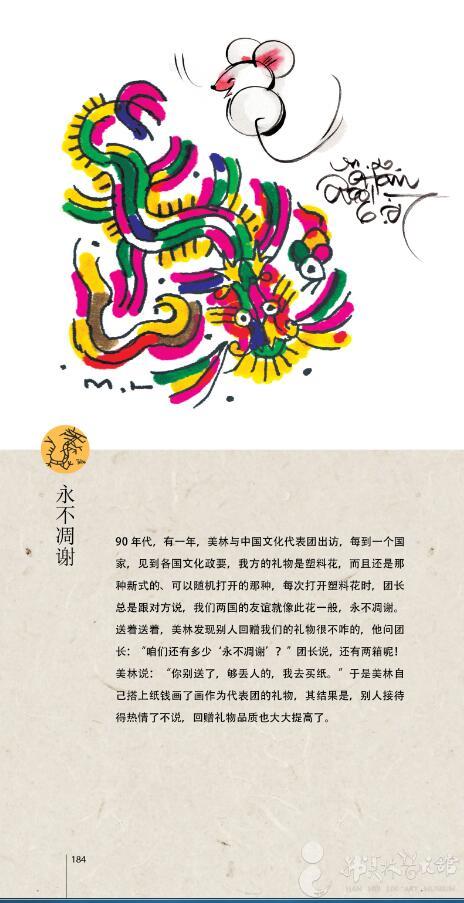 M.L
永不凋谢
90 年代，有一年，美林与中国文化代表团出访，每到一个国
家，见到各国文化政要，我方的礼物是塑料花，而且还是那
种新式的、可以随机打开的那种，每次打开塑料花时，团长
总是跟对方说，我们两国的友谊就像此花一般，永不凋谢。
送着送着，美林发现别人回赠我们的礼物很不咋的，他问团
长：“咱们还有多少‘永不凋谢’？”团长说，还有两箱呢！
美林说：“你别送了，够丢人的，我去买纸。”于是美林自
己搭上纸钱画了画作为代表团的礼物，其结果是，别人接待
得热情了不说，回赠礼物品质也大大提高了。
184
韩美林艺术馆
HAN MEI LIN ART MUSEUM